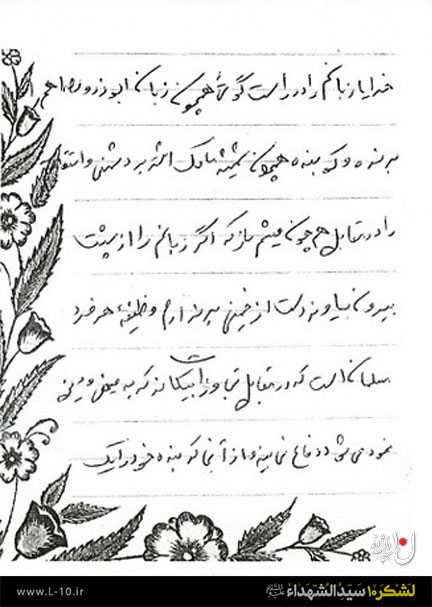 خدایا زبانم را در راست گوئی همچون زبان ابوذر و
برنده و کوبنده همچون شمشیر مالک اشتر بر دشمنی و استوار
را در مقابل هم چون میثم ساز که اگر زبانم را از پشت
بیرون بیاورند دست از خمینی برندارم وظیفه هر فرد
مسلمان است که در مقابل تجاوزات بیگانه که به میهن و دین
نمود می شود دفاع نماید و از آنجا که بنده خود را یک
www.L-10.ir
لشکر ۱۰ سیدالشهداء